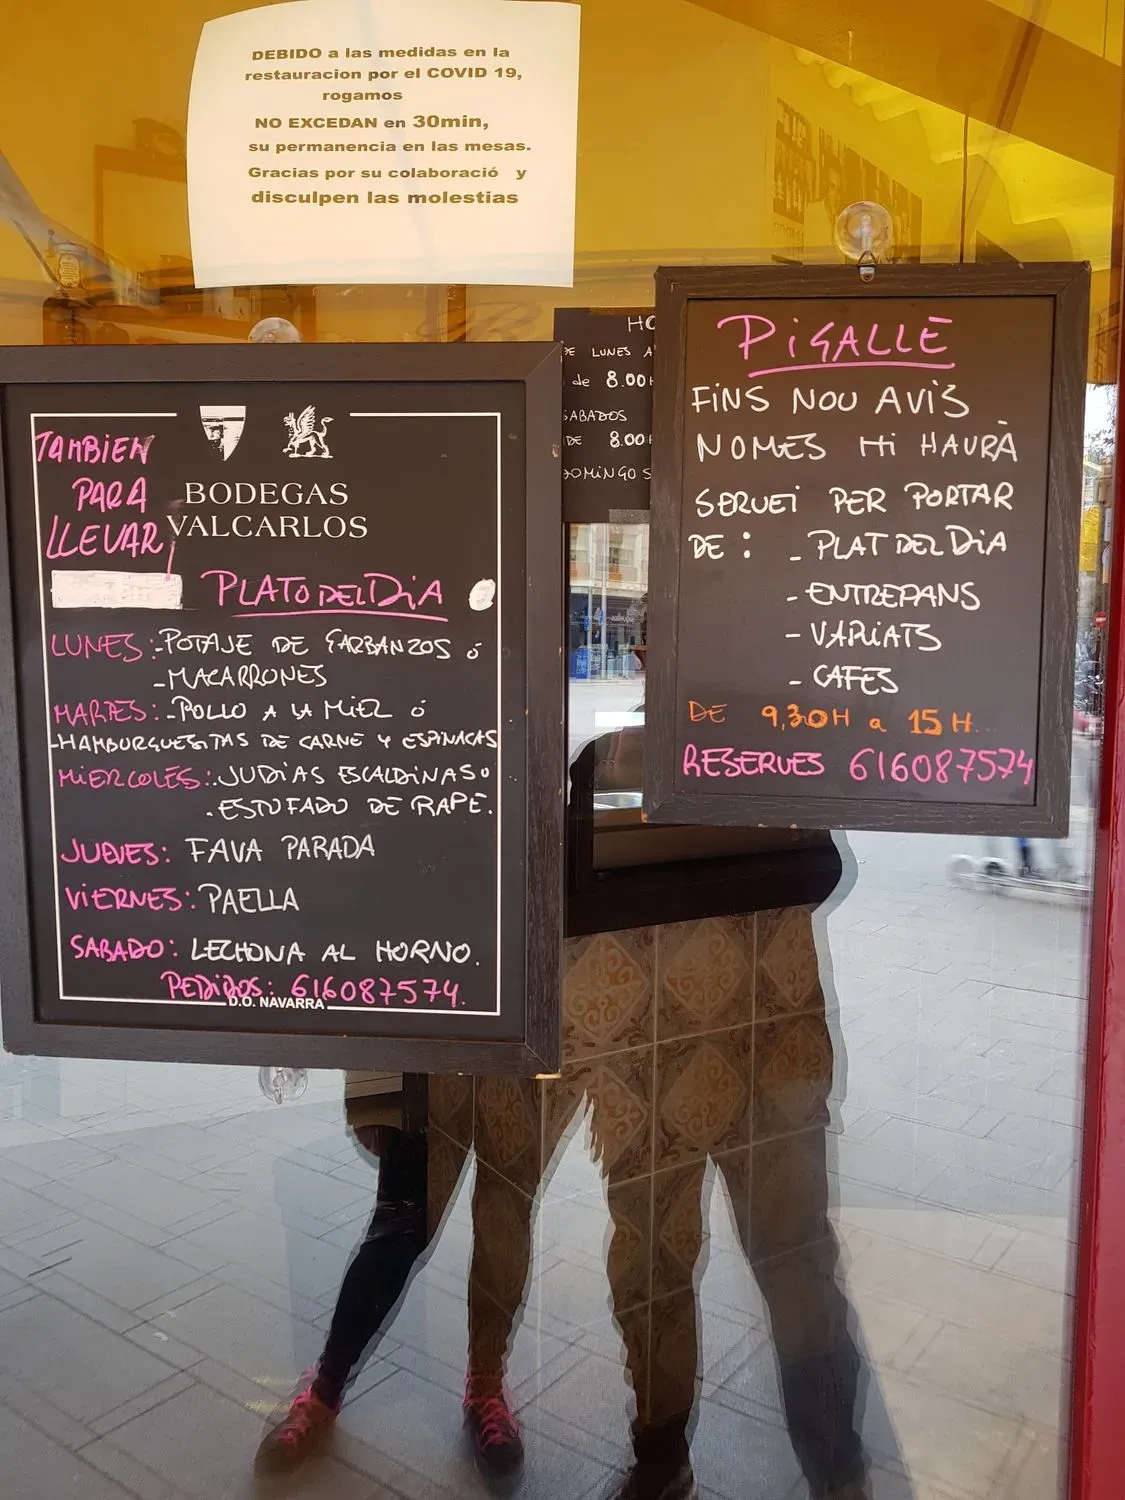 DEBIDO a las medidas en la
restauracion por el COVID 19,
rogamos
NO EXCEDAN en 30min,
su permanencia en las mesas.
Gracias por su colaboració y
disculpen las molestias
TAMBIEN
PARA
LLEVAR
BODEGAS
VALCARLOS
PLATO DEL DiA
LUNES:-POTAJE DE GARBANZOS ó
-MACARRONES
MARTES:-POLLO A LA MiEL ó
-HAMBURGUESITAS DE CARNE Y ESPINACAS
MiERCOLES:.JUDiAS ESCALDiNAS o
.ESTOFADO DE RAPE.
JUEVES: FAVA PARADA
ViERNES: PAELLA
SABADO: LECHONA AL HORNO.
PEDiDOS: 616087574.
D.O. NAVARRA
HO
DE LUNES A
de 8.00H
SABADOS
DE 8.00
DOMiNGOS
PiGALLE
FiNS NOU AViS
NOMES Hi HAURÀ
SERVEi PER PORTAR
DE: -PLAT DEL DiA
-ENTREPANS
-VARiATS
-CAFES
DE 9,30H a 15H
RESERVES 616087574